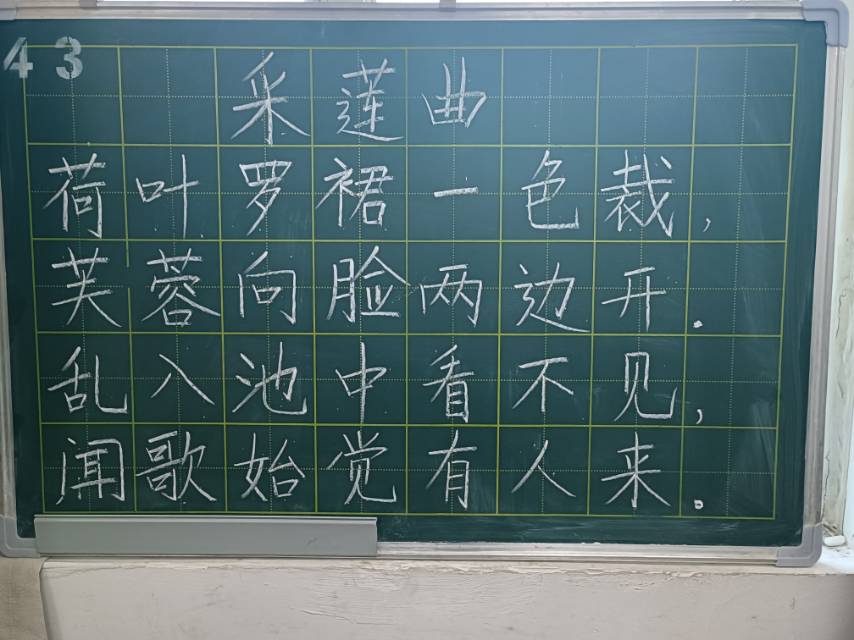 43
采莲曲
荷叶罗裙一色裁,
芙蓉向脸两边开.
乱入池中看不见,
闻歌始觉有人来.